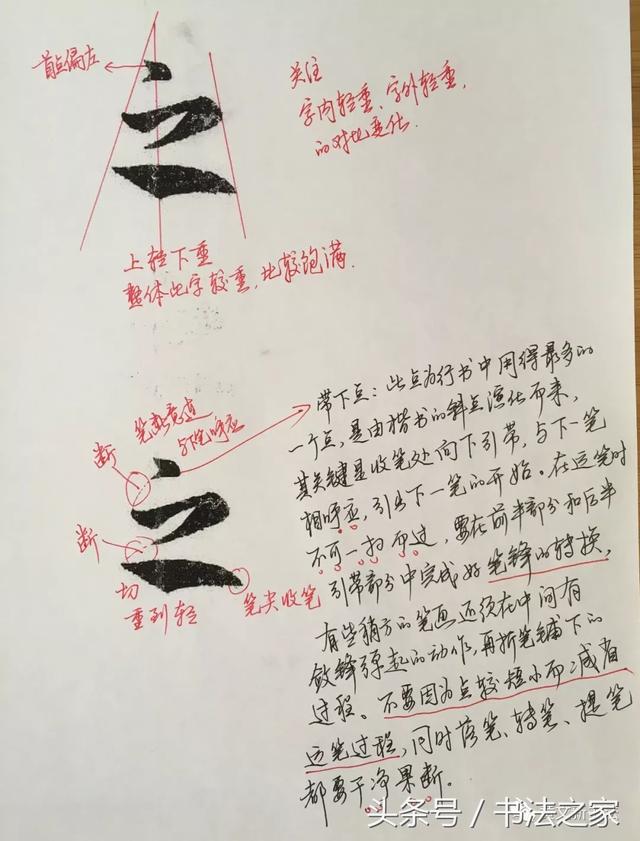 首点偏左
之
关注
字内轻重、字外轻重,
的对比变化.
上轻下重
整体此字较重,比较饱满.
断
笔断意连
与下笔呼应
之
断
切
重到轻
笔尖收笔
带下点:此点为行书中用得最多的
一个点,是由楷书的斜点演化而来,
其关键是收笔处向下引带,与下一笔
相呼应,引出下一笔的开始。在运笔时
不可一扫而过,要在前半部分和后半
引带部分中完成好笔锋的转换,
有些稍方的笔画还须在中间有
敛锋弹起的动作,再折笔铺下的
过程。不要因为点较短小而减省
运笔过程,同时落笔、转笔、提笔
都要干净果断。
头条号/书法之家